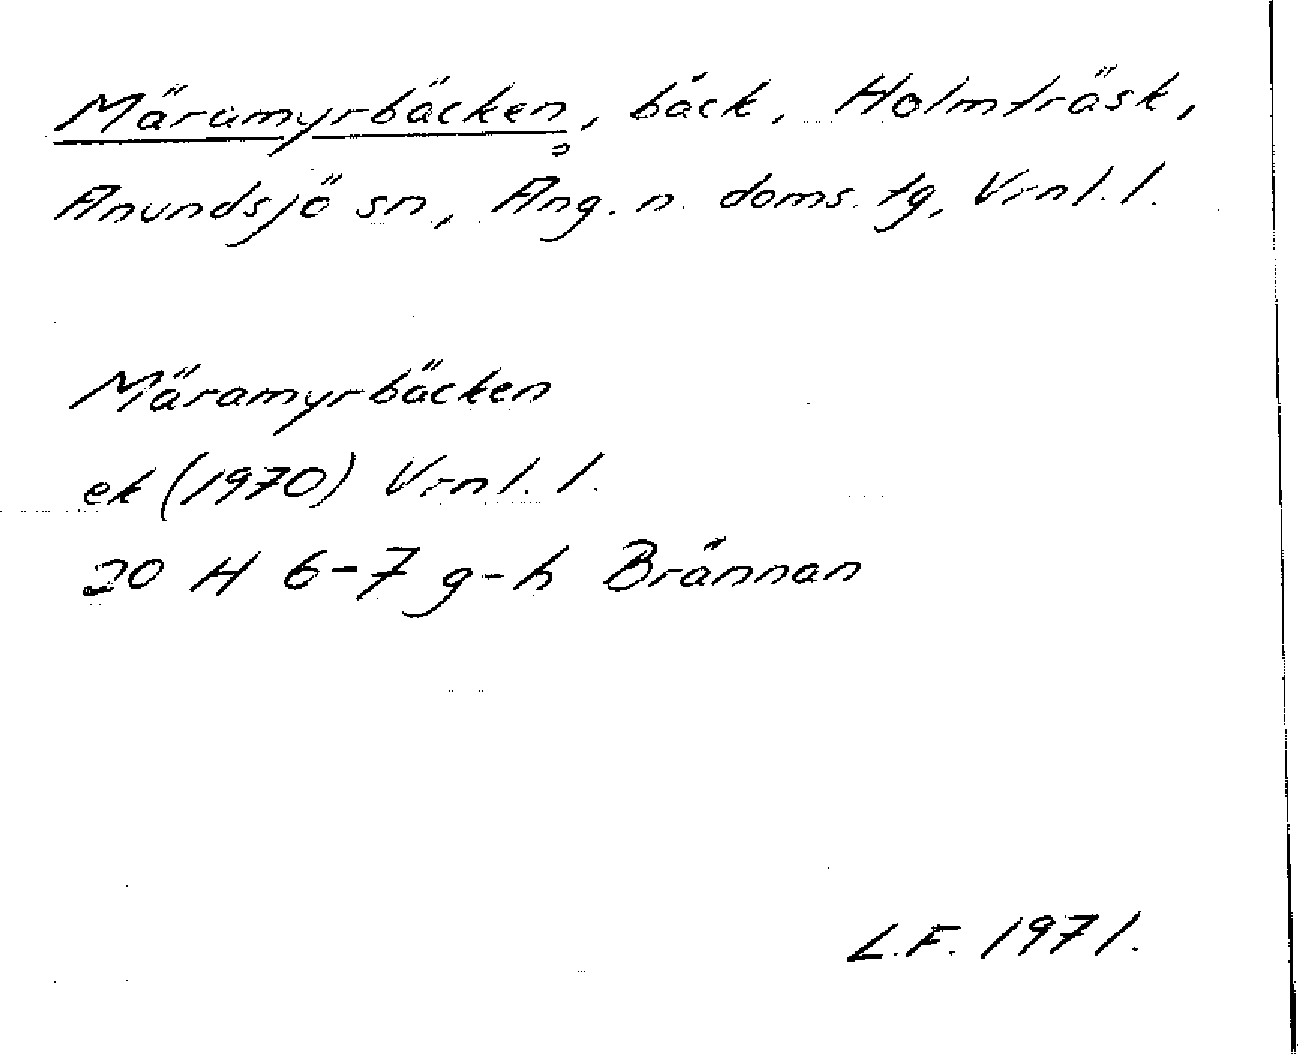 Märamyrbäcken, bäck, Holmträsk,
Anundsjö sn, Ång. n. doms. tg, Vrnl. l.
Märamyrbäcken
ek (1970) Vrnl. l.
20 H 6-7 g-h Brännan
L.F. 1971.